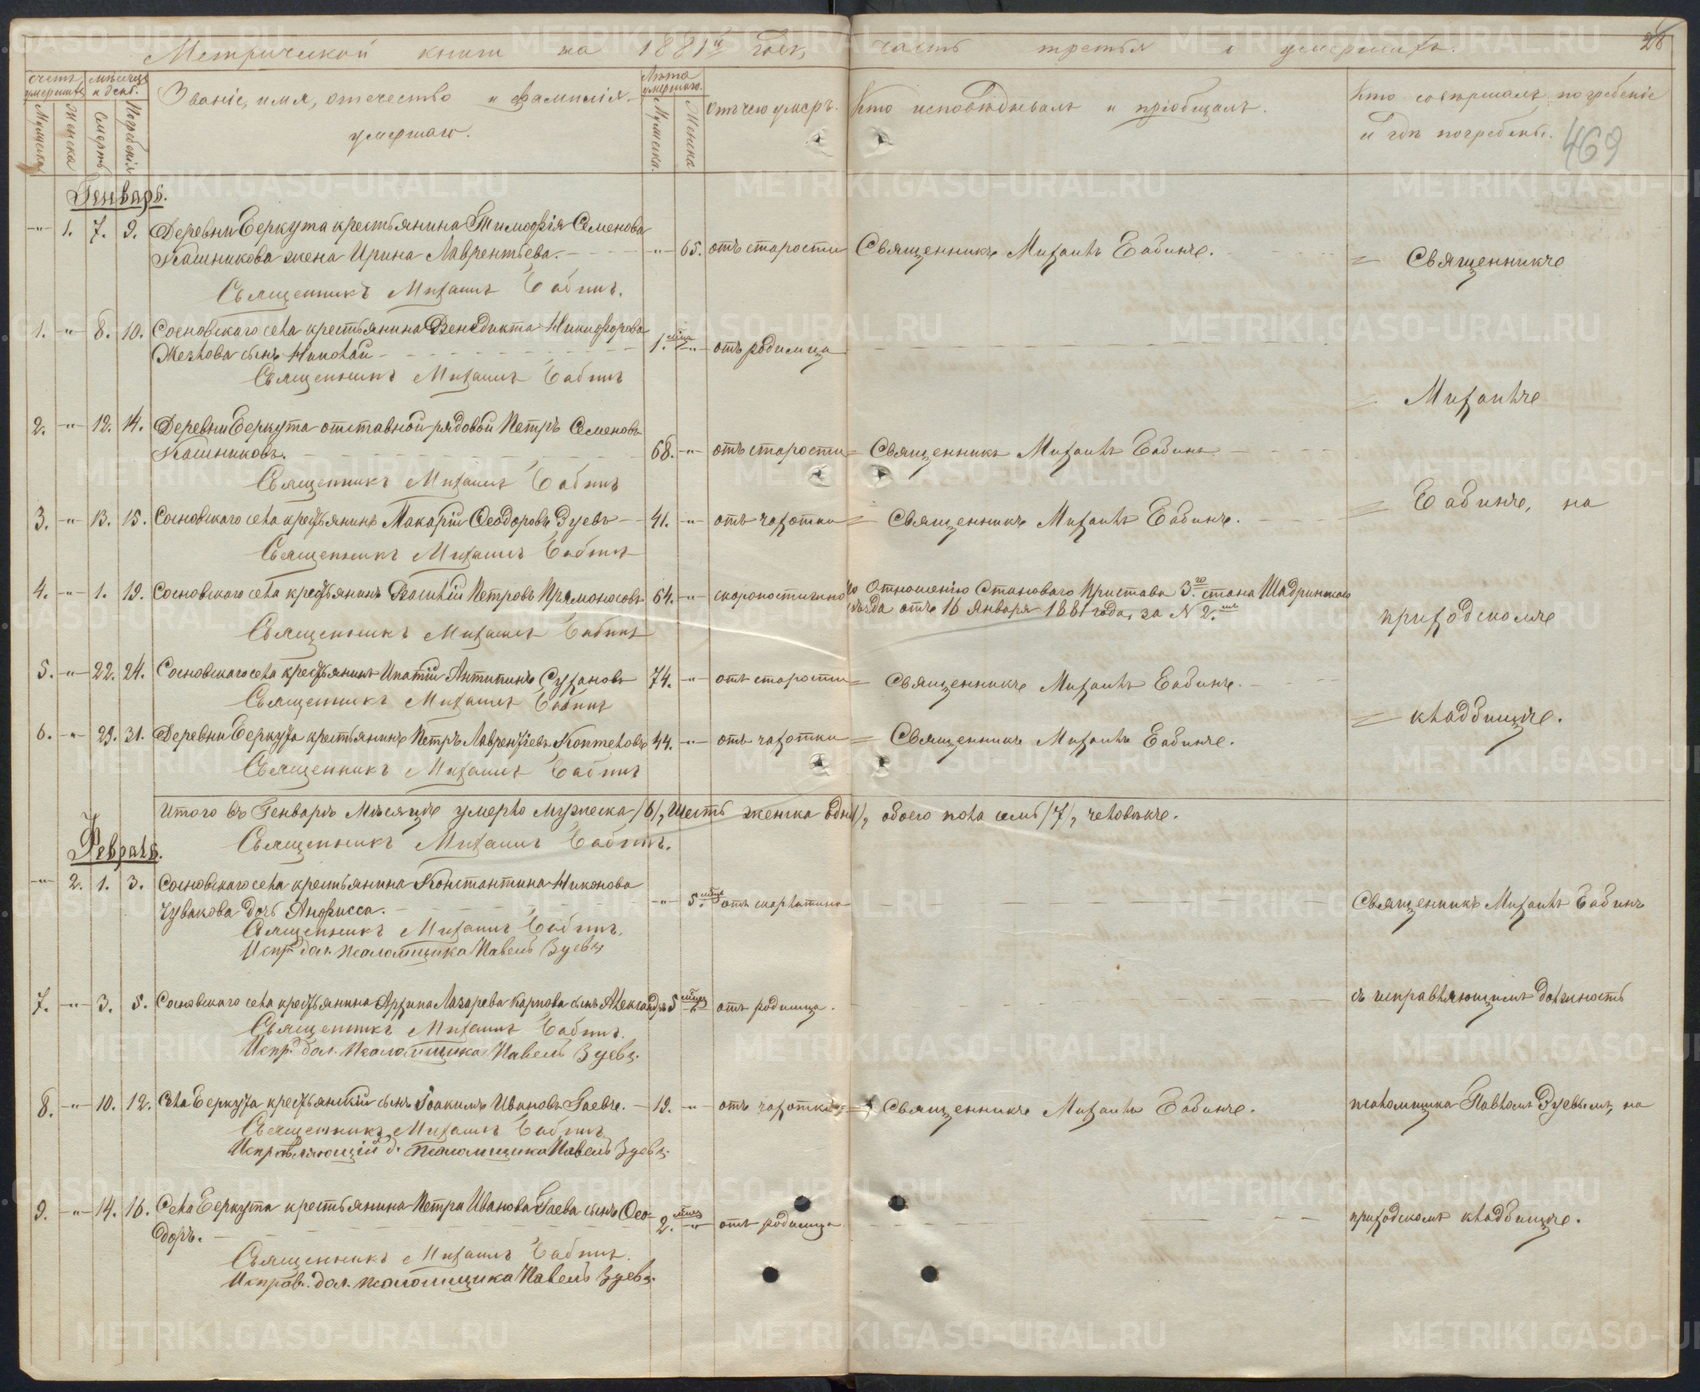 Метрической книги на 1881й годъ, часть третья о умершихъ.
26
469
Счетъ умершихъ.
Мѣсяцъ и день.
Званіе, имя, отечество и фамилія
умершаго.
Лѣта умершаго.
Отъ чего умеръ.
Кто исповѣдывалъ и пріобщалъ.
Кто совершалъ погребеніе
и гдѣ погребены.
Мужеска
Женска
Смерти
Погребенія
Мужеска.
Женска
Генварь.
-"- 1. 7. 9. Деревни Беркута крестьянина Тимофѣя Семенова
Кашникова жена Ирина Лаврентьева. -"- 65. отъ старости Священникъ Михаилъ Бабинъ. Священникъ
Священникъ Михаилъ Бабинъ.
1. -"- 8. 10. Сосновскаго села крестьянина Венедикта Никифорова
сынъ Николай 1. мѣс. -"- отъ родимца
Священникъ Михаилъ Бабинъ
Михаилъ
2. -"- 12. 14. Деревни Беркута отставной рядовой Петръ Семеновъ
Кашниковъ. 68. -"- отъ старости Священникъ Михаилъ Бабинъ
Священникъ Михаилъ Бабинъ
Бабинъ, на
3. -"- 13. 15. Сосновскаго села крестьянинъ Макарій Ѳеодоровъ Зуевъ 41. -"- отъ чахотки Священникъ Михаилъ Бабинъ.
Священникъ Михаилъ Бабинъ
4. -"- 1. 19. Сосновскаго села крестьянинъ Василій Петровъ Прямоносовъ 64. -"- скоропостижно по Отношенію Становаго Пристава 3го стана Шадринскаго
уѣзда отъ 16 Января 1881 года, за N 2.
Священникъ Михаилъ Бабинъ
приходскомъ
5. -"- 22. 24. Сосновскаго села крестьянинъ Ипатій Антипинъ Сухановъ 74. -"- отъ старости Священникъ Михаилъ Бабинъ.
Священникъ Михаилъ Бабинъ
кладбищѣ.
6. -"- 29. 31. Деревни Беркута крестьянинъ Петръ Лаврентьевъ Коптеловъ 44. -"- отъ чахотки Священникъ Михаилъ Бабинъ.
Священникъ Михаилъ Бабинъ
Итого въ Генварѣ Мѣсяцѣ умерло мужеска /6/, Шесть женска одна /1/, обоего пола семь /7/, человѣкъ.
Священникъ Михаилъ Бабинъ.
Февраль.
-"- 2. 1. 3. Сосновскаго села крестьянина Константина Никонова
Чувакова дочь Анфисса. -"- 5. мѣс. отъ скарлатина Священникъ Михаилъ Бабинъ
Священникъ Михаилъ Бабинъ.
Испр. дол. псаломщика Павелъ Зуевъ
7. -"- 3. 5. Сосновскаго села крестьянина Архипа Лазарева Карпова сынъ Александръ 5 мѣс. -"- отъ родимца. съ исправляющимъ должность
Священникъ Михаилъ Бабинъ.
Испр. дол. Псаломщика Павелъ Зуевъ.
8. -"- 10. 12. Села Беркута крестьянскій сынъ Іоакимъ Ивановъ Гаевъ. 19. -"- отъ чахотки Священникъ Михаилъ Бабинъ. псаломщика Павломъ Зуевымъ, на
Священникъ Михаилъ Бабинъ
Исправляющій д. псаломщика Павелъ Зуевъ.
9. -"- 14. 16. Села Беркута крестьянина Петра Иванова Гаева сынъ Ѳео-
доръ. 2. мѣс. -"- отъ родимца приходскомъ кладбищѣ.
Священникъ Михаилъ Бабинъ.
Исправ. дол. псаломщика Павелъ Зуевъ.
METRIKI.GASO-URAL.RU